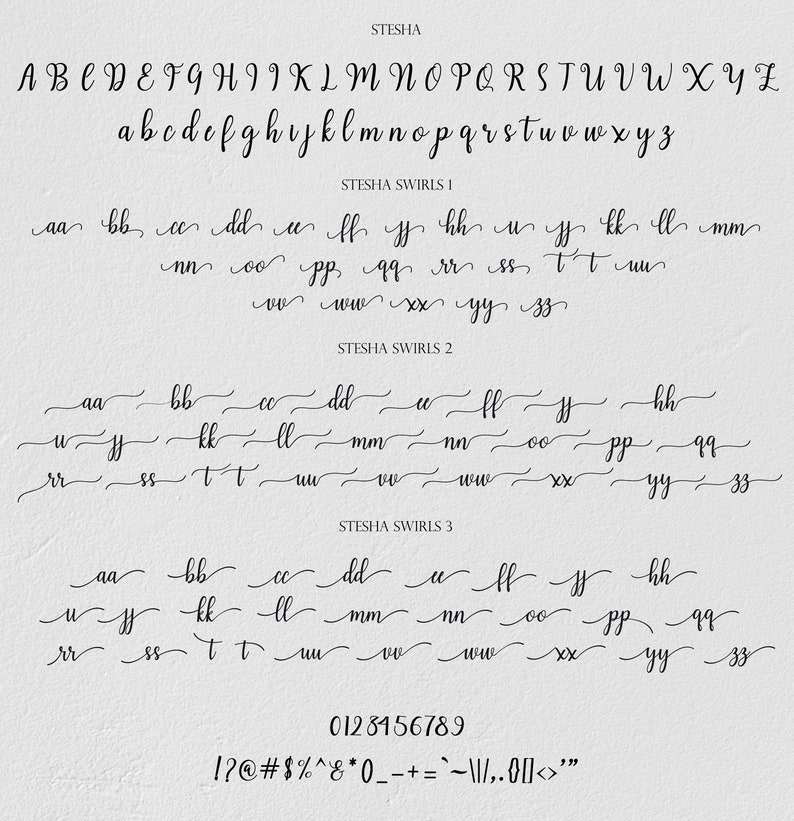 STESHA
A B C D E F G H I J K L M N O P Q R S T U V W X Y Z
a b c d e f g h i j k l m n o p q r s t u v w x y z
STESHA SWIRLS 1
aa bb cc dd ee ff jj hh ıı jj kk ll mm
nn oo pp qq rr ss t t uu
vv ww xx yy zz
STESHA SWIRLS 2
aa bb cc dd ee ff jj hh
ıı jj kk ll mm nn oo pp qq
rr ss t t uu vv ww xx yy zz
STESHA SWIRLS 3
aa bb cc dd ee ff jj hh
ıı jj kk ll mm nn oo pp qq
rr ss t t uu vv ww xx yy zz
0123456789
!?@#$%^&*()_-+=`~\||/,.{}[]<>'"